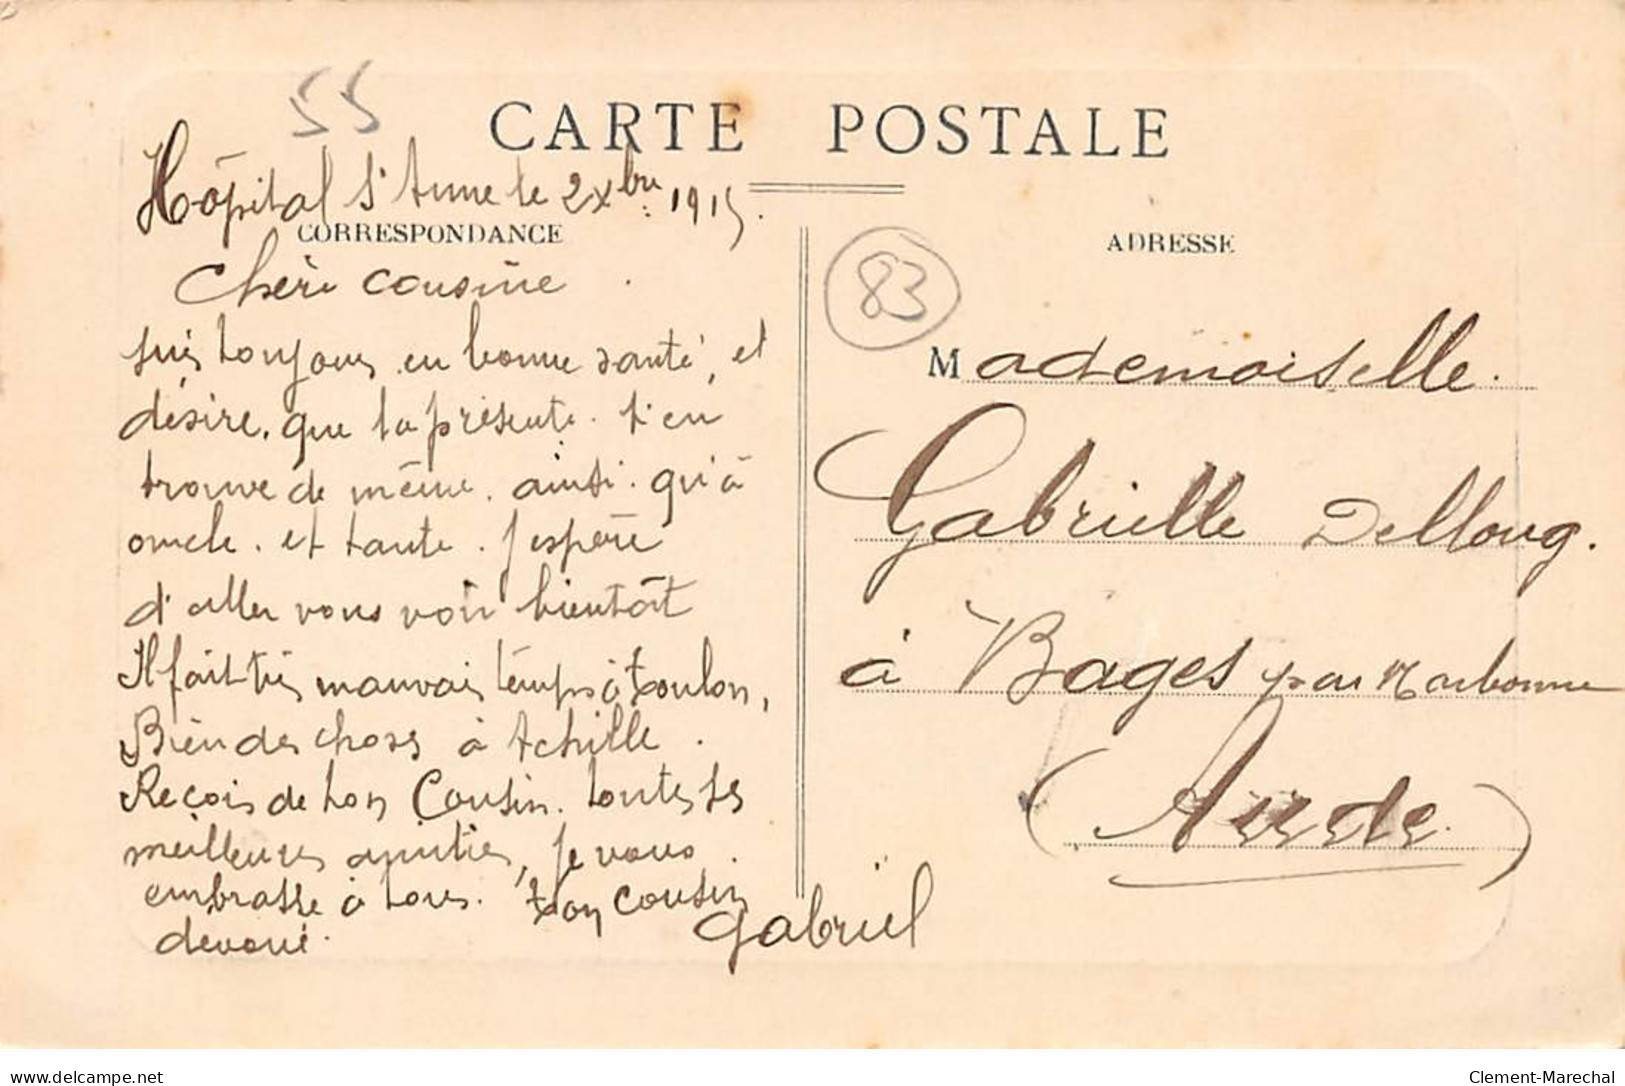 55
CARTE POSTALE
Hôpital St Anne le 2 xbre 1915.
CORRESPONDANCE
Chère cousine
suis toujours en bonne santé, et
désire. que la présente. t'en
trouve de même. ainsi. qu'à
oncle. et tante. J'espère
d'aller vous voir bientôt
Il fait très mauvais temps à toulon,
Bien des choses à Achille.
Reçois de ton Cousin. toutes ses
meilleures amitiés, je vous.
embrasse à tous. ton cousin
dévoué.
Gabriel
83
ADRESSE
Mademoiselle.
Gabrielle Delloug.
à Bages par Narbonne
(Aude.)
Clement-Marechal